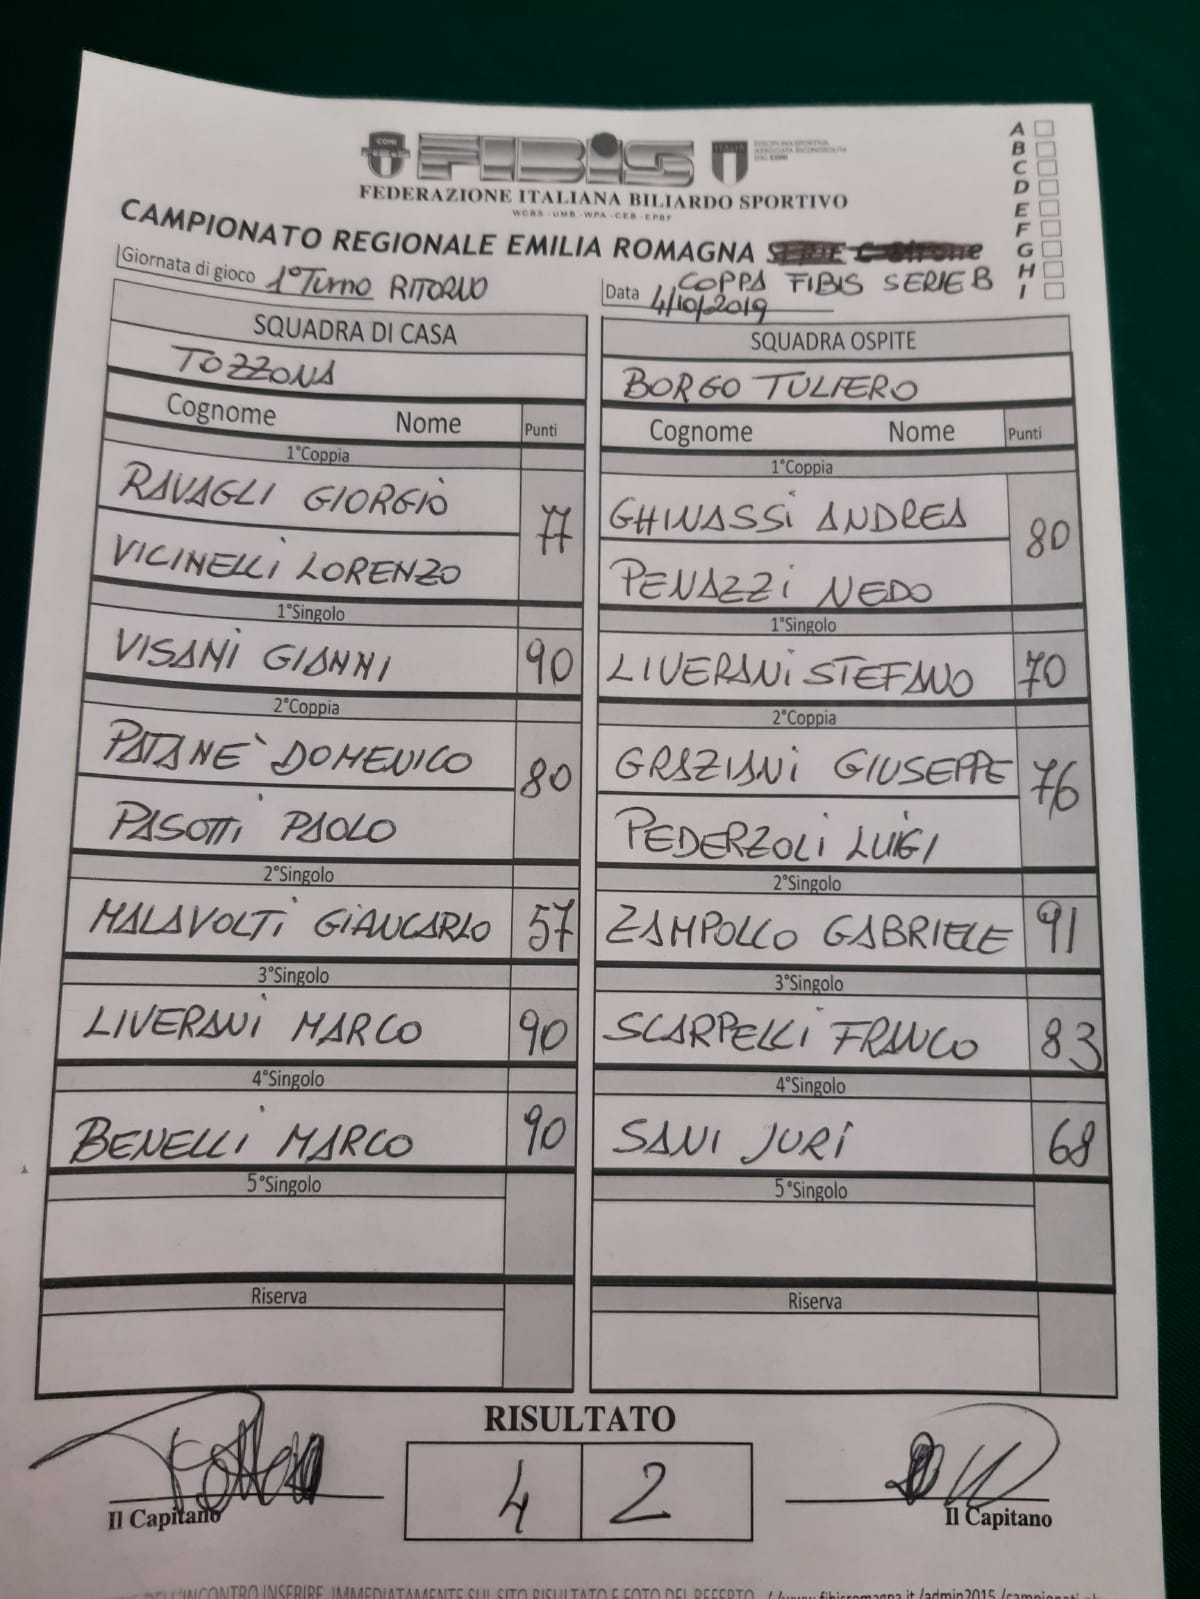 CONI FIBIS ITALIA DISCIPLINA SPORTIVA ASSOCIATA RICONOSCIUTA DAL CONI
FEDERAZIONE ITALIANA BILIARDO SPORTIVO
W.C.B.S. - U.M.B. - W.P.A. - C.E.B. - E.P.B.F.
A
B
C
D
E
F
G
H
I
CAMPIONATO REGIONALE EMILIA ROMAGNA SERIE
COPPA FIBIS SERIE B
Giornata di gioco 1° Turno RITORNO
Data 4/10/2019
SQUADRA DI CASA
TOZZONA
Cognome Nome Punti
1°Coppia
RAVAGLI GIORGIO
77
VICINELLI LORENZO
1°Singolo
VISANI GIANNI 90
2°Coppia
PATANE' DOMENICO
80
PASOTTI PAOLO
2°Singolo
MALAVOLTI GIANCARLO 57
3°Singolo
LIVERANI MARCO 90
4°Singolo
BENELLI MARCO 90
5°Singolo
Riserva
SQUADRA OSPITE
BORGO TULIERO
Cognome Nome Punti
1°Coppia
GHINASSI ANDREA
80
PENAZZI NEDO
1°Singolo
LIVERANI STEFANO 70
2°Coppia
GRAZIANI GIUSEPPE
76
PEDERZOLI LUIGI
2°Singolo
ZAMPOLLO GABRIELE 91
3°Singolo
SCARPELLI FRANCO 83
4°Singolo
SANI JURI 68
5°Singolo
Riserva
RISULTATO
4 2
Il Capitano
Il Capitano
DELL'INCONTRO INSERIRE IMMEDIATAMENTE SUL SITO RISULTATO E FOTO DEL REFERTO